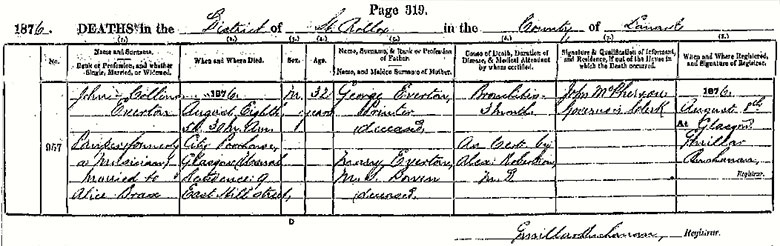 Page 319.
1876. DEATHS in the District of St. Rollox in the County of Lanark
(1.) (2.) (3.) (4.) (5.) (6.) (7.) (8.)
No.
Name and Surname.
Rank or Profession, and whether Single, Married, or Widowed.
When and Where Died.
Sex.
Age.
Name, Surname, & Rank or Profession of Father.
Name, and Maiden Surname of Mother.
Cause of Death, Duration of Disease, & Medical Attendant by whom certified.
Signature & Qualification of Informant, and Residence, if out of the House in which the Death occurred.
When and Where Registered, and Signature of Registrar.
957
John Collins
Everton
formerly
a Musician
Married to
Alice
1876.
August Eighth
30m. A.M.
City Poorhouse,
Glasgow
Residence 9
East Hill Street,
M.
32
years
George Everton,
Printer
deceased
Mary Everton,
M.S.
deceased.
Bronchitis
3 months
As Cert. by
Alexr. Robertson,
M.D.
John McPherson
Governor's Clerk
1876.
August 8th
At Glasgow
Buchanan,
Registrar.
D
Buchanan, Registrar.